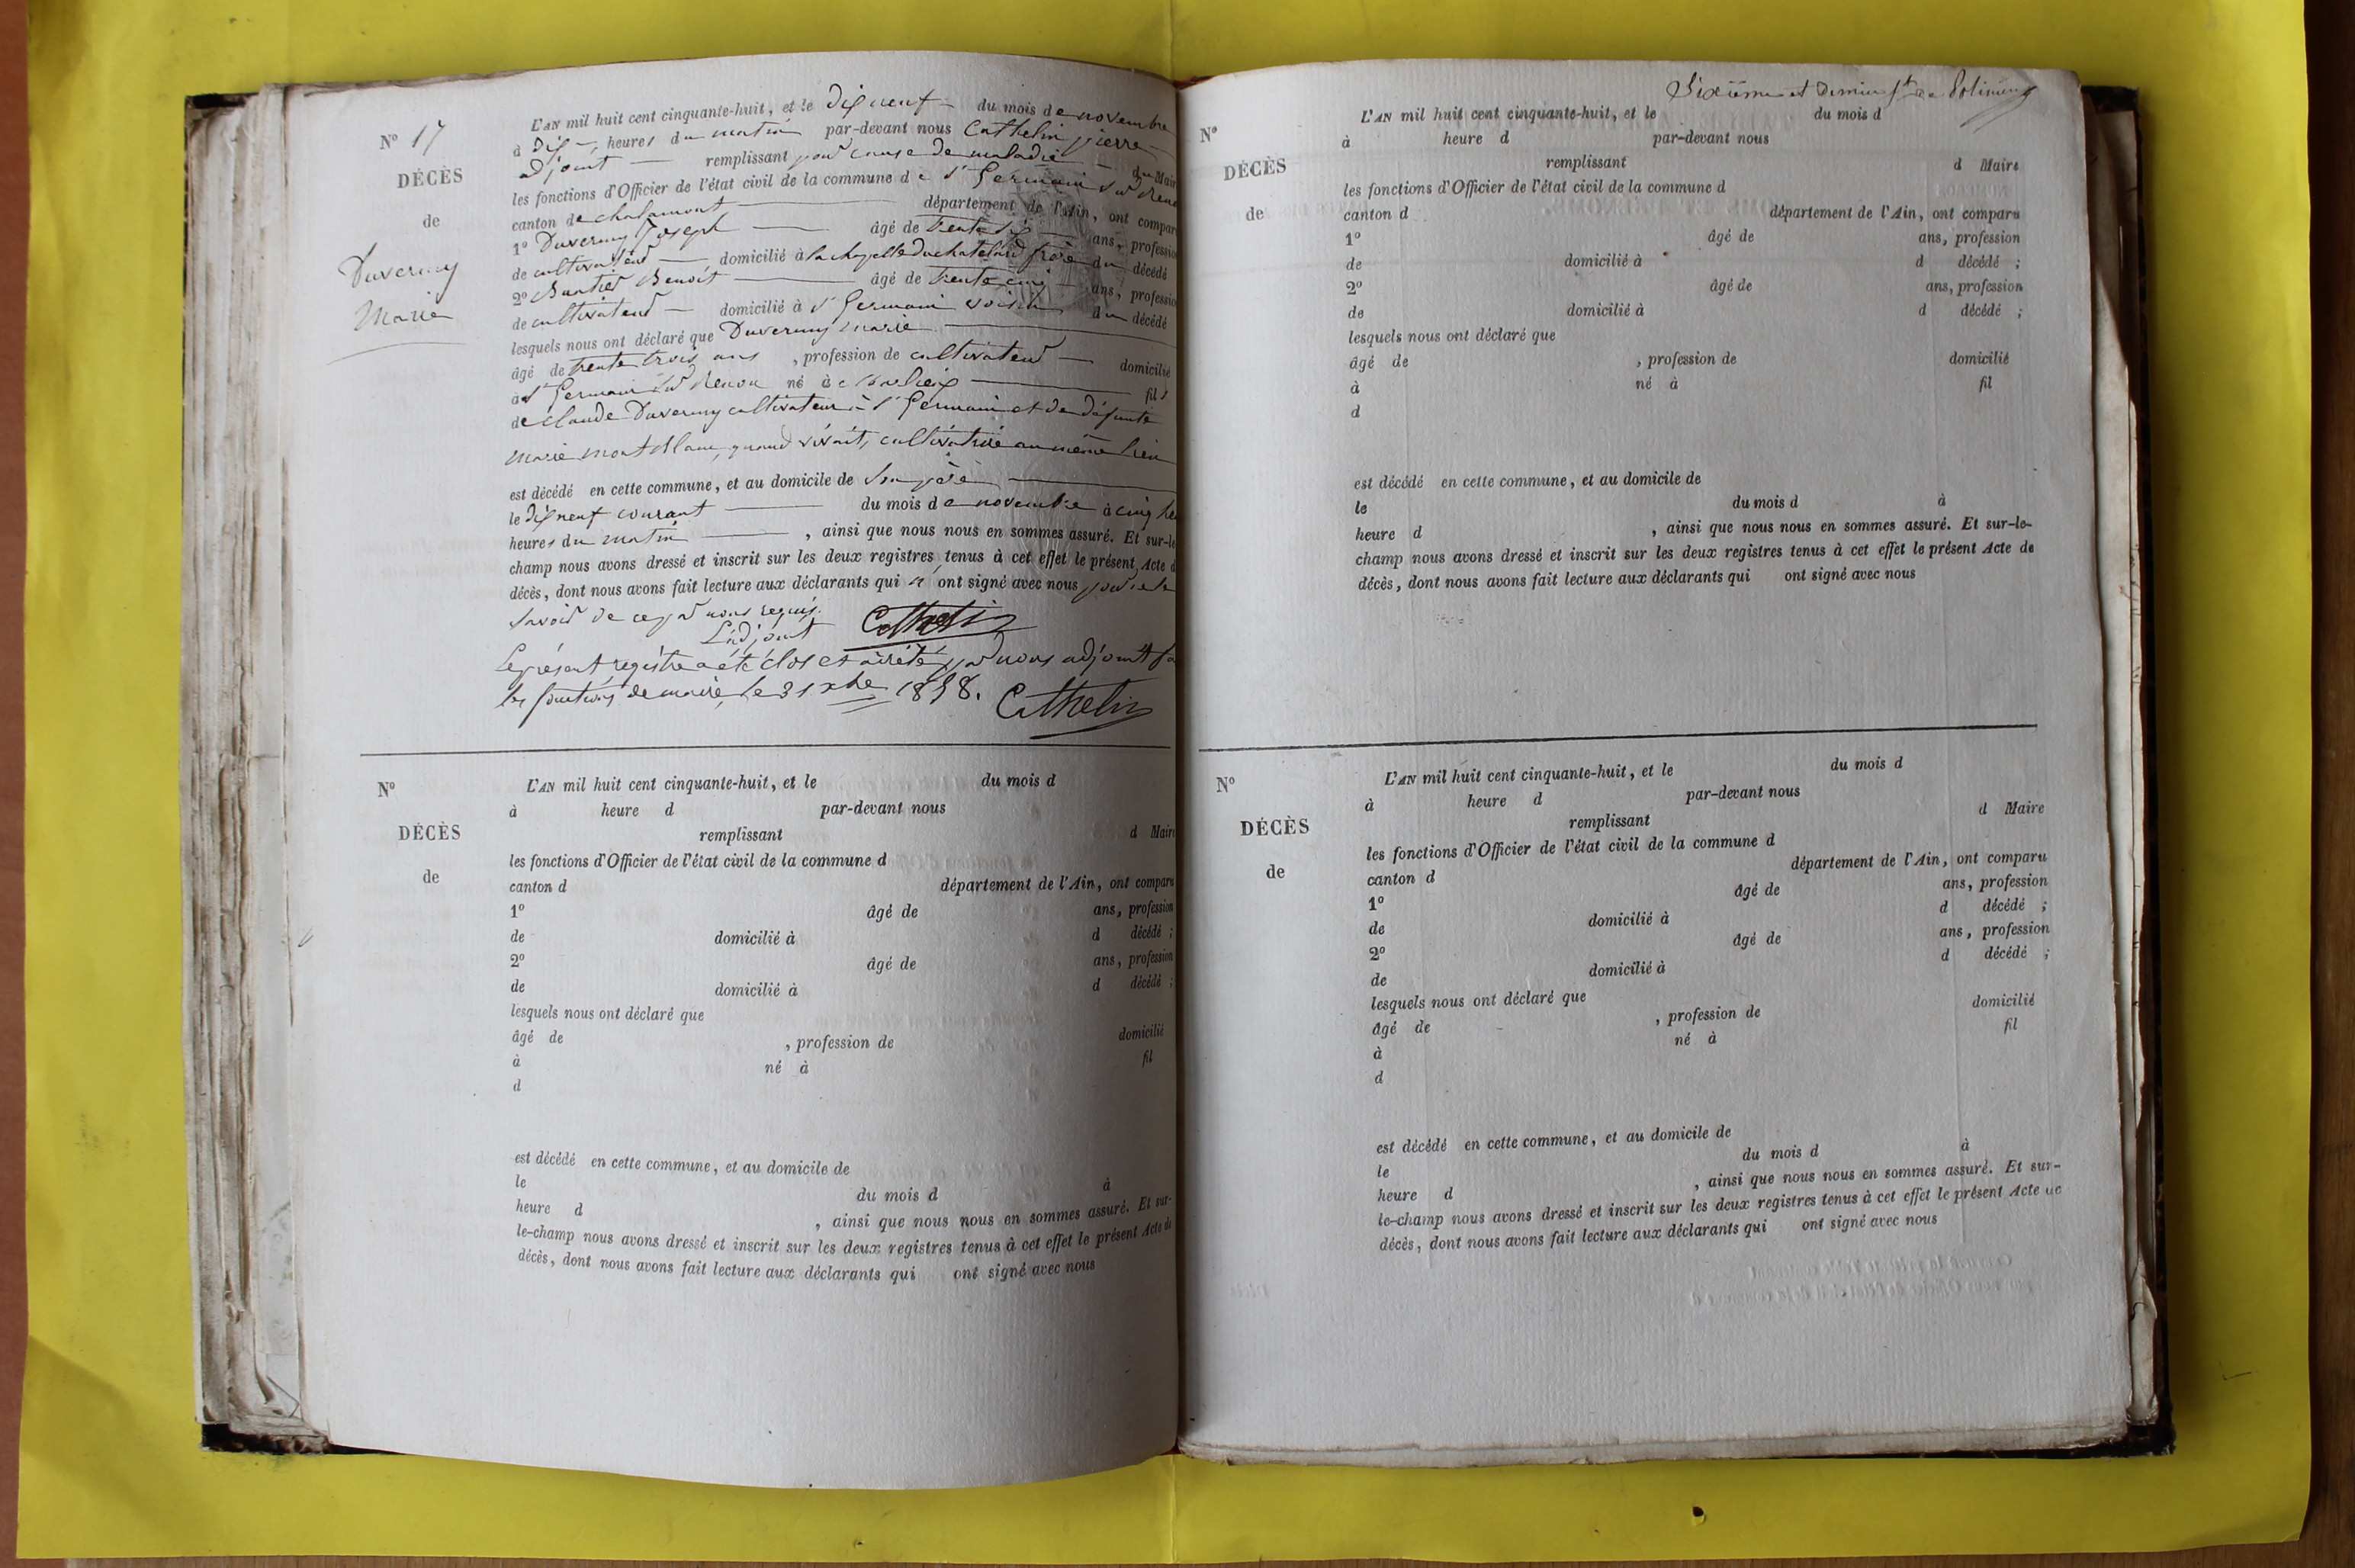 N° 17
DÉCÈS
de
Duverney
Marie
L'AN mil huit cent cinquante-huit, et le dix neuf du mois de novembre
à dix heures du matin par-devant nous Cathelin pierre
adjoint remplissant pour cause de maladie du Mair
les fonctions d'Officier de l'état civil de la commune de St Germain sur Reno
canton de chalamont département de l'Ain, ont compar
1° Duverney Joseph âgé de trente six ans, professio
de cultivateur domicilié à la chapelle du chatelard frère du décédé
2° Benoit âgé de trente cinq ans, professio
de cultivateur domicilié à St Germain voisin du décédé
lesquels nous ont déclaré que Duverney marie
âgé de trente trois ans, profession de cultivateur domicilié
à St Germain sur Renon né à fils
de claude Duverney cultivateur à St Germain et de défunte
marie quand vivait, cultivatrice au même lieu
est décédé en cette commune, et au domicile de Son père
le dix neuf courant du mois de novembre à cinq he
heures du matin, ainsi que nous nous en sommes assuré. Et sur-le
champ nous avons dressé et inscrit sur les deux registres tenus à cet effet le présent Acte d
décès, dont nous avons fait lecture aux déclarants qui n'ont signé avec nous pour ne le
savoir de ce par nous requis.
L'adjoint Cathelin
Le présent registre a été clos et arrêté par nous adjoint
les fonctions de maire, le 31 xbre 1858. Cathelin
N°
DÉCÈS
de
L'AN mil huit cent cinquante-huit, et le du mois d
à heure d par-devant nous
remplissant d Maire
les fonctions d'Officier de l'état civil de la commune d
canton d département de l'Ain, ont comparu
1° âgé de ans, profession
de domicilié à d décédé ;
2° âgé de ans, profession
de domicilié à d décédé ;
lesquels nous ont déclaré que
âgé de , profession de domicilié
à né à fil
d
est décédé en cette commune, et au domicile de
le du mois d à
heure d , ainsi que nous nous en sommes assuré. Et sur-
le-champ nous avons dressé et inscrit sur les deux registres tenus à cet effet le présent Acte de
décès, dont nous avons fait lecture aux déclarants qui ont signé avec nous
Sixième et dernier
N°
DÉCÈS
de
L'AN mil huit cent cinquante-huit, et le du mois d
à heure d par-devant nous
remplissant d Maire
les fonctions d'Officier de l'état civil de la commune d
canton d département de l'Ain, ont comparu
1° âgé de ans, profession
de domicilié à d décédé ;
2° âgé de ans, profession
de domicilié à d décédé ;
lesquels nous ont déclaré que
âgé de , profession de domicilié
à né à fil
d
est décédé en cette commune, et au domicile de
le du mois d à
heure d , ainsi que nous nous en sommes assuré. Et sur-le-
champ nous avons dressé et inscrit sur les deux registres tenus à cet effet le présent Acte de
décès, dont nous avons fait lecture aux déclarants qui ont signé avec nous
N°
DÉCÈS
de
L'AN mil huit cent cinquante-huit, et le du mois d
à heure d par-devant nous
remplissant d Maire
les fonctions d'Officier de l'état civil de la commune d
canton d département de l'Ain, ont comparu
1° âgé de ans, profession
de domicilié à d décédé ;
2° âgé de ans, profession
de domicilié à d décédé ;
lesquels nous ont déclaré que
âgé de , profession de domicilié
à né à fil
d
est décédé en cette commune, et au domicile de
le du mois d à
heure d , ainsi que nous nous en sommes assuré. Et sur-
le-champ nous avons dressé et inscrit sur les deux registres tenus à cet effet le présent Acte de
décès, dont nous avons fait lecture aux déclarants qui ont signé avec nous